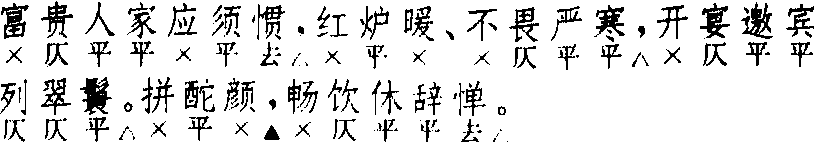 富贵人家应须惯，红炉暖、不畏严寒，开宴邀宾
×仄平平×平去△×平××仄平平△×仄平平
列翠鬟。拼酡颜，畅饮休辞惮。
仄仄平△×平×▲×仄平平去△